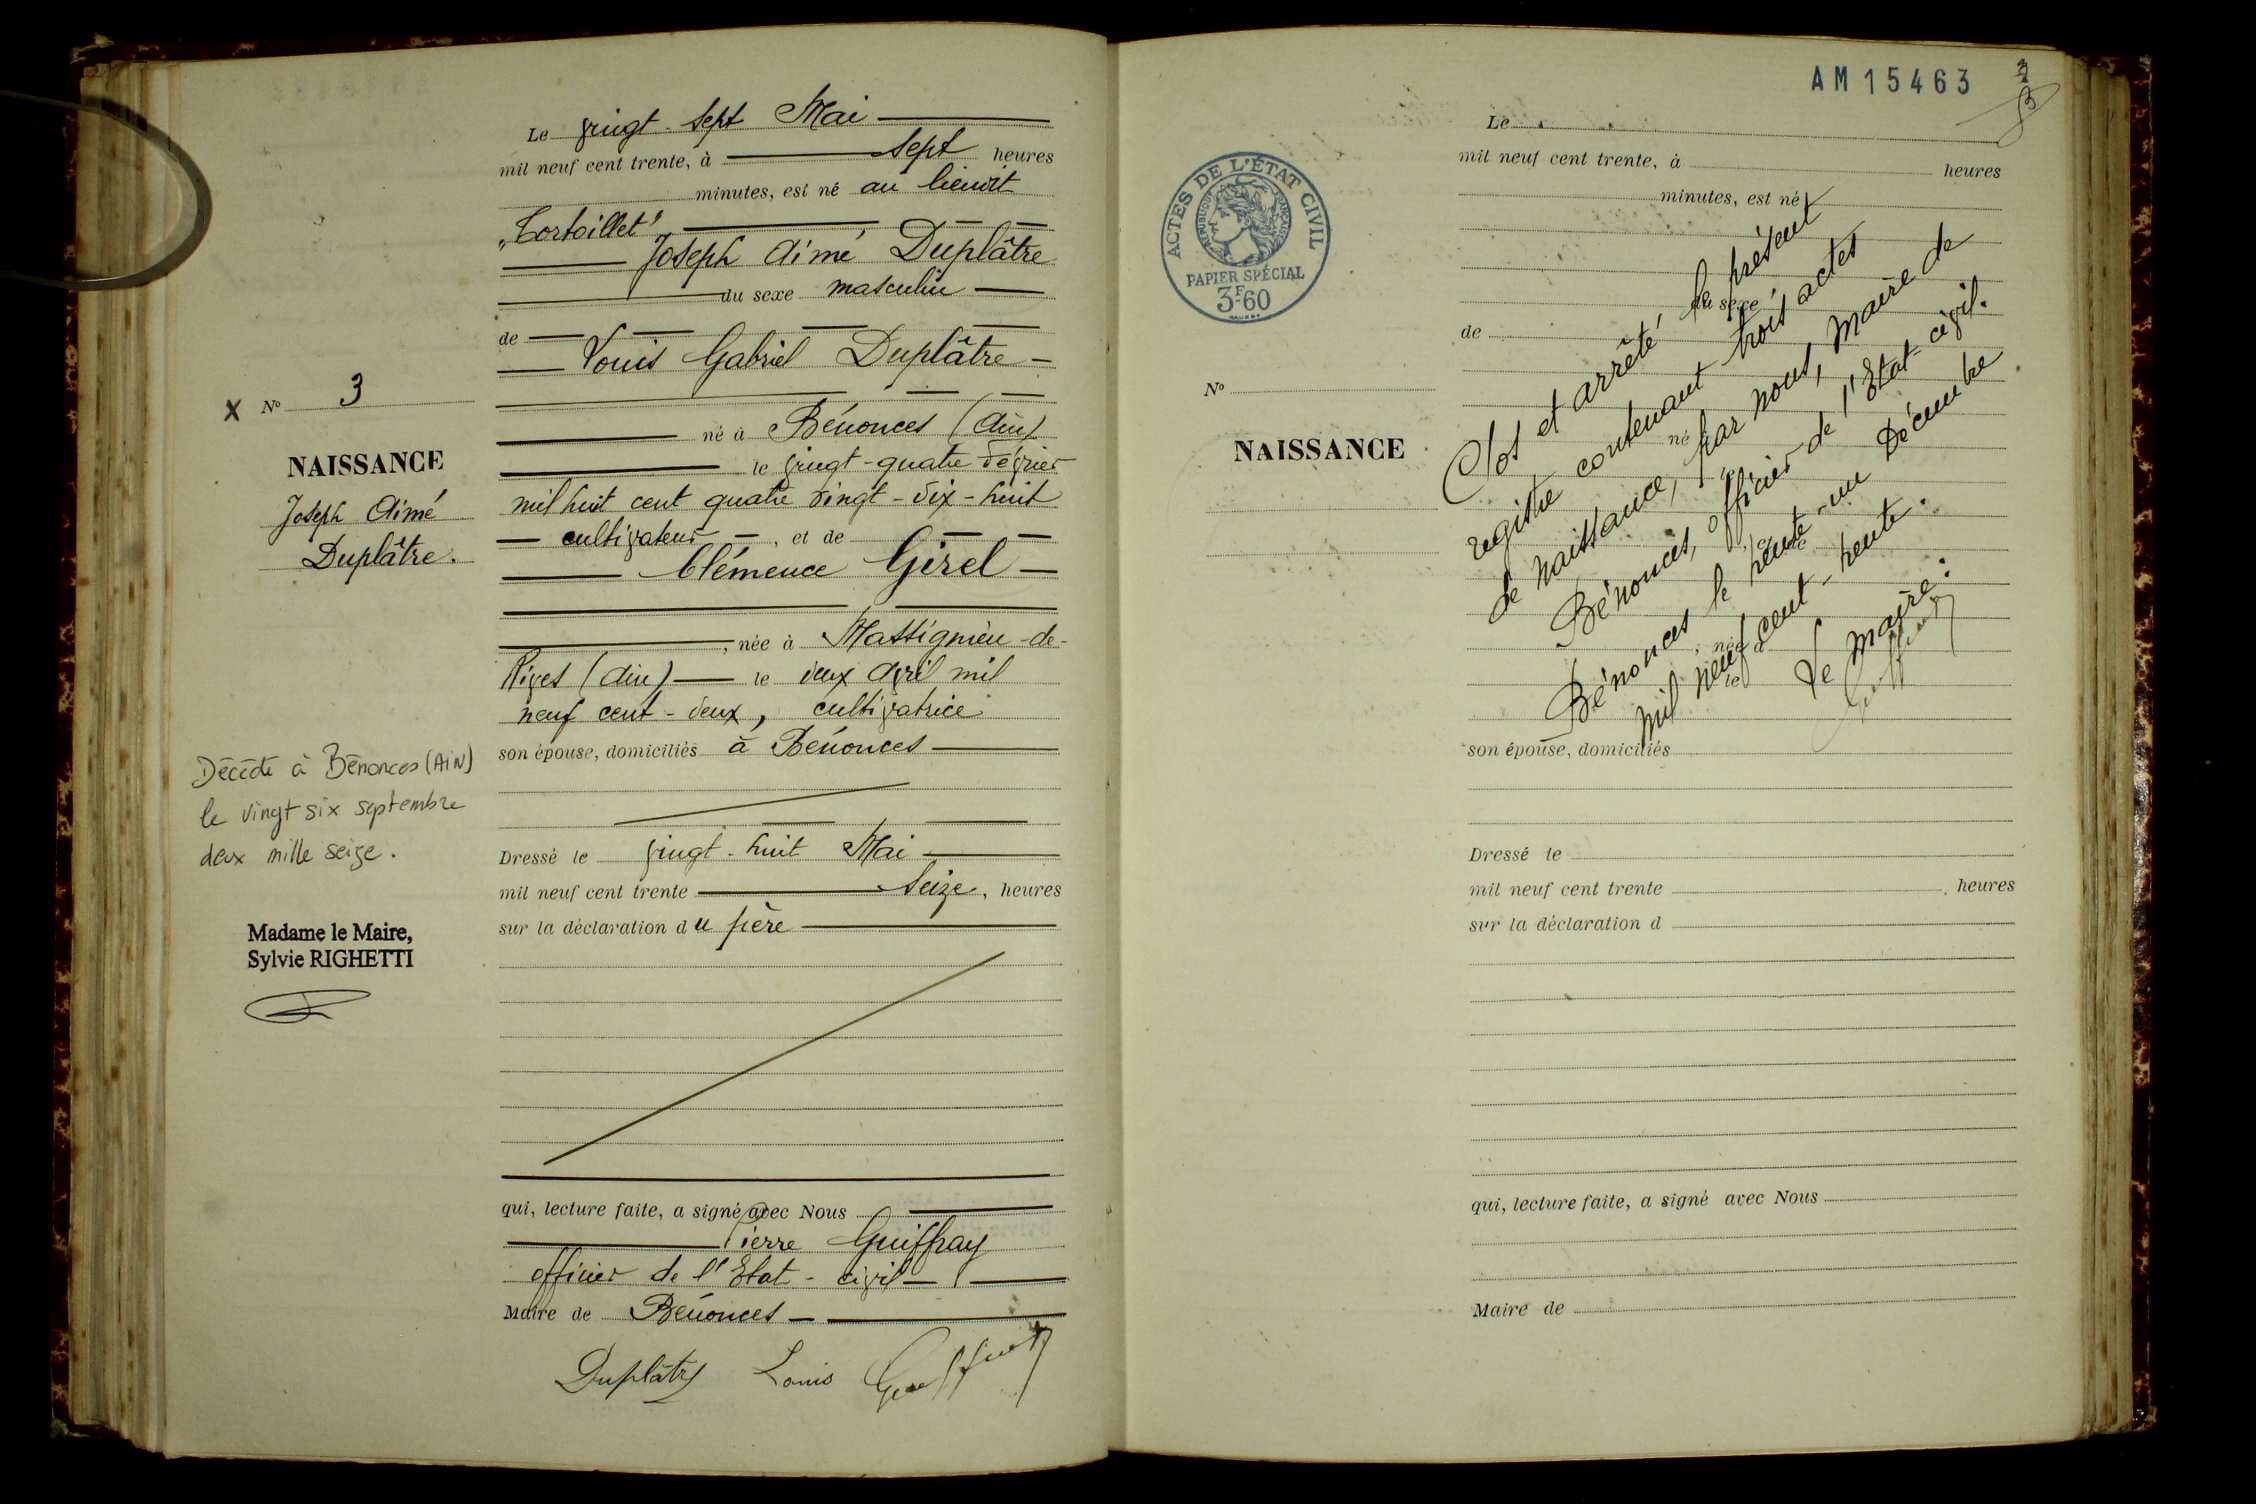 Le vingt-sept Mai
mil neuf cent trente, à sept heures
minutes, est né au lieudit
"Tortoillet"
Joseph Aimé Duplâtre
du sexe masculin
de
Louis Gabriel Duplâtre
né à Bénonces (Ain)
le vingt-quatre février
mil huit cent quatre vingt-dix-huit
cultivateur, et de
Clémence Girel
, née à Massignieu-de-
Rives (Ain) le deux avril mil
neuf cent-deux, cultivatrice
son épouse, domiciliés à Bénonces
Dressé le vingt-huit Mai
mil neuf cent trente seize, heures
sur la déclaration du père
qui, lecture faite, a signé avec Nous
Pierre Guiffray
officier de l'Etat-civil
Maire de Bénonces
Duplâtre Louis Guiffray
X No 3
NAISSANCE
Joseph Aimé
Duplâtre.
Décédé à Bénonces (AIN)
le vingt six septembre
deux mille seize.
Madame le Maire,
Sylvie RIGHETTI
AM15463
3
ACTES DE L'ÉTAT CIVIL
RÉPUBLIQUE FRANÇAISE
PAPIER SPÉCIAL
3F60
No
NAISSANCE
Le
mil neuf cent trente, à heures
minutes, est né
du sexe
de
né
le
, et de
, née à
le
son épouse, domiciliés
Dressé le
mil neuf cent trente , heures
sur la déclaration d
qui, lecture faite, a signé avec Nous
Maire de
Clos et arrêté le présent
registre contenant trois actes
de naissance, par nous, maire de
Bénonces, officier de l'Etat-civil.
Bénonces le trente-un Décembre
mil neuf cent-trente.
Le maire:
Guiffray